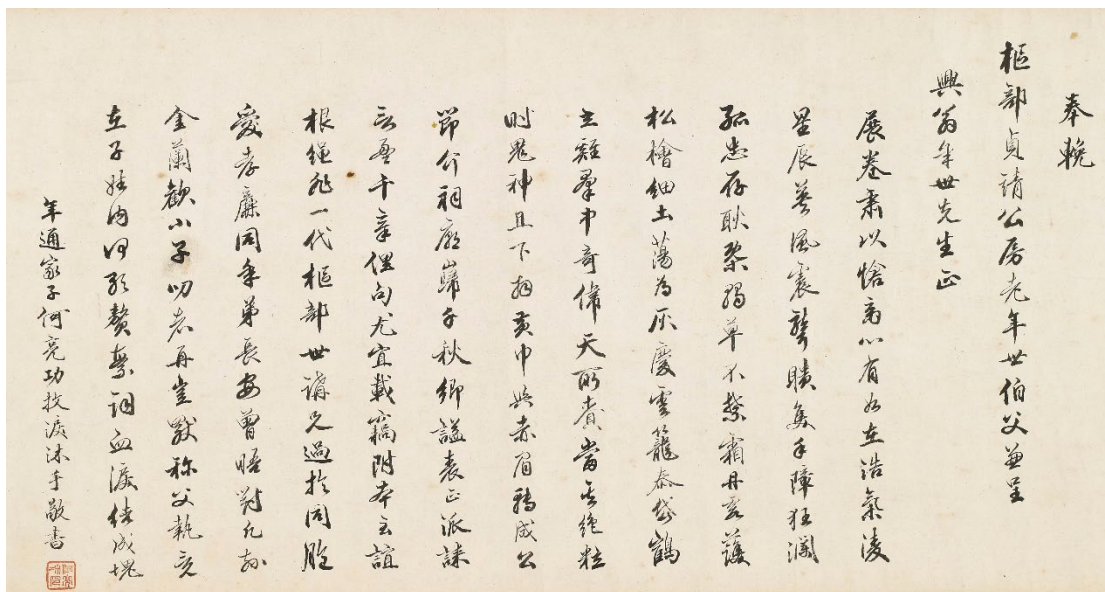 奉輓
樞部貞靖公房老年世伯父兼呈
興翁年世先生正
展卷肅以愴高山有如在浩氣凌
星辰英風震聾聵隻手障狂瀾
孤忠存耿槩弱草不禁霜丹霞護
松檜細土蕩為灰慶雲籠泰岱鶴
立雞羣中奇偉天所賚當其絕粒
時鬼神且下拜黃巾與赤眉稱成公
節介祠廟巋千秋卿謚表正派誄
言盈千章俚句尤宜載竊附本立誼
根繩非一代樞部世講兄過於同胞
愛孝廉同年弟長安曾晤對凡我
金蘭歡小子叨末再豈獸称父執竟
在子姪內何能贅蕪詞血淚結成塊
年通家子何亮功抆淚沐手敬書